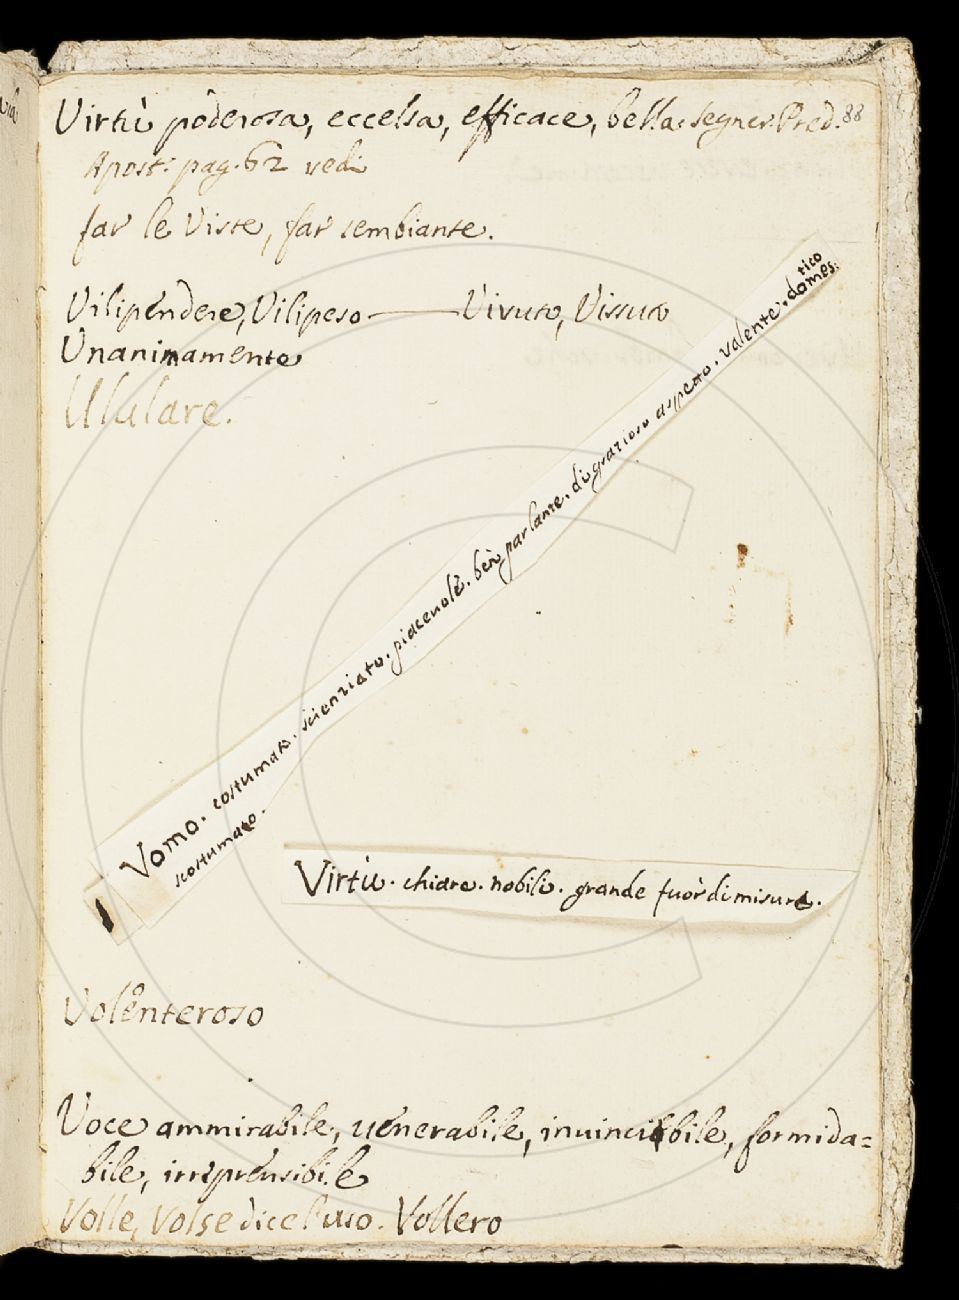 Virtù poderosa, eccelsa, efficace, bella. Segner. Pred. 88
Apost. pag. 62 vedi
far le Viste, far sembiante.
Vilipendere, Vilipeso — Vivuto, Vissuto
Unanimamente
Ululare.
Vomo. costumato. scienziato. piacevole. ben parlante. di grazioso aspetto. valente. domes:
tico
scostumato.
Virtù. chiara. nobile. grande fuor di misura.
Volenteroso
Voce ammirabile, venerabile, invincibile, formida=
bile, irreprensibile
Volle, Volse dice l'uso. Vollero